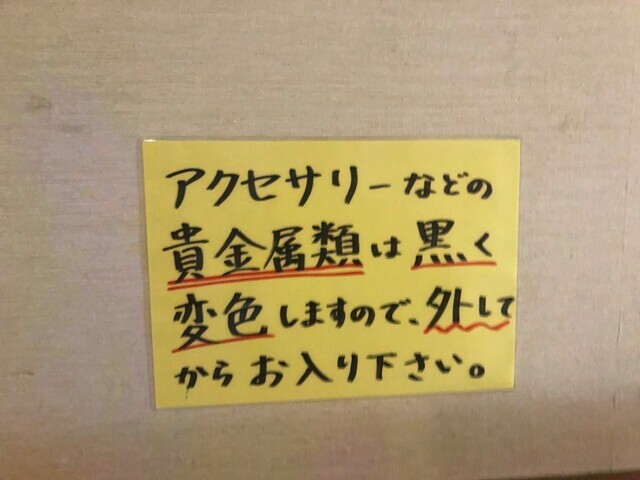 アクセサリーなどの
貴金属類は黒く
変色しますので、外して
からお入り下さい。